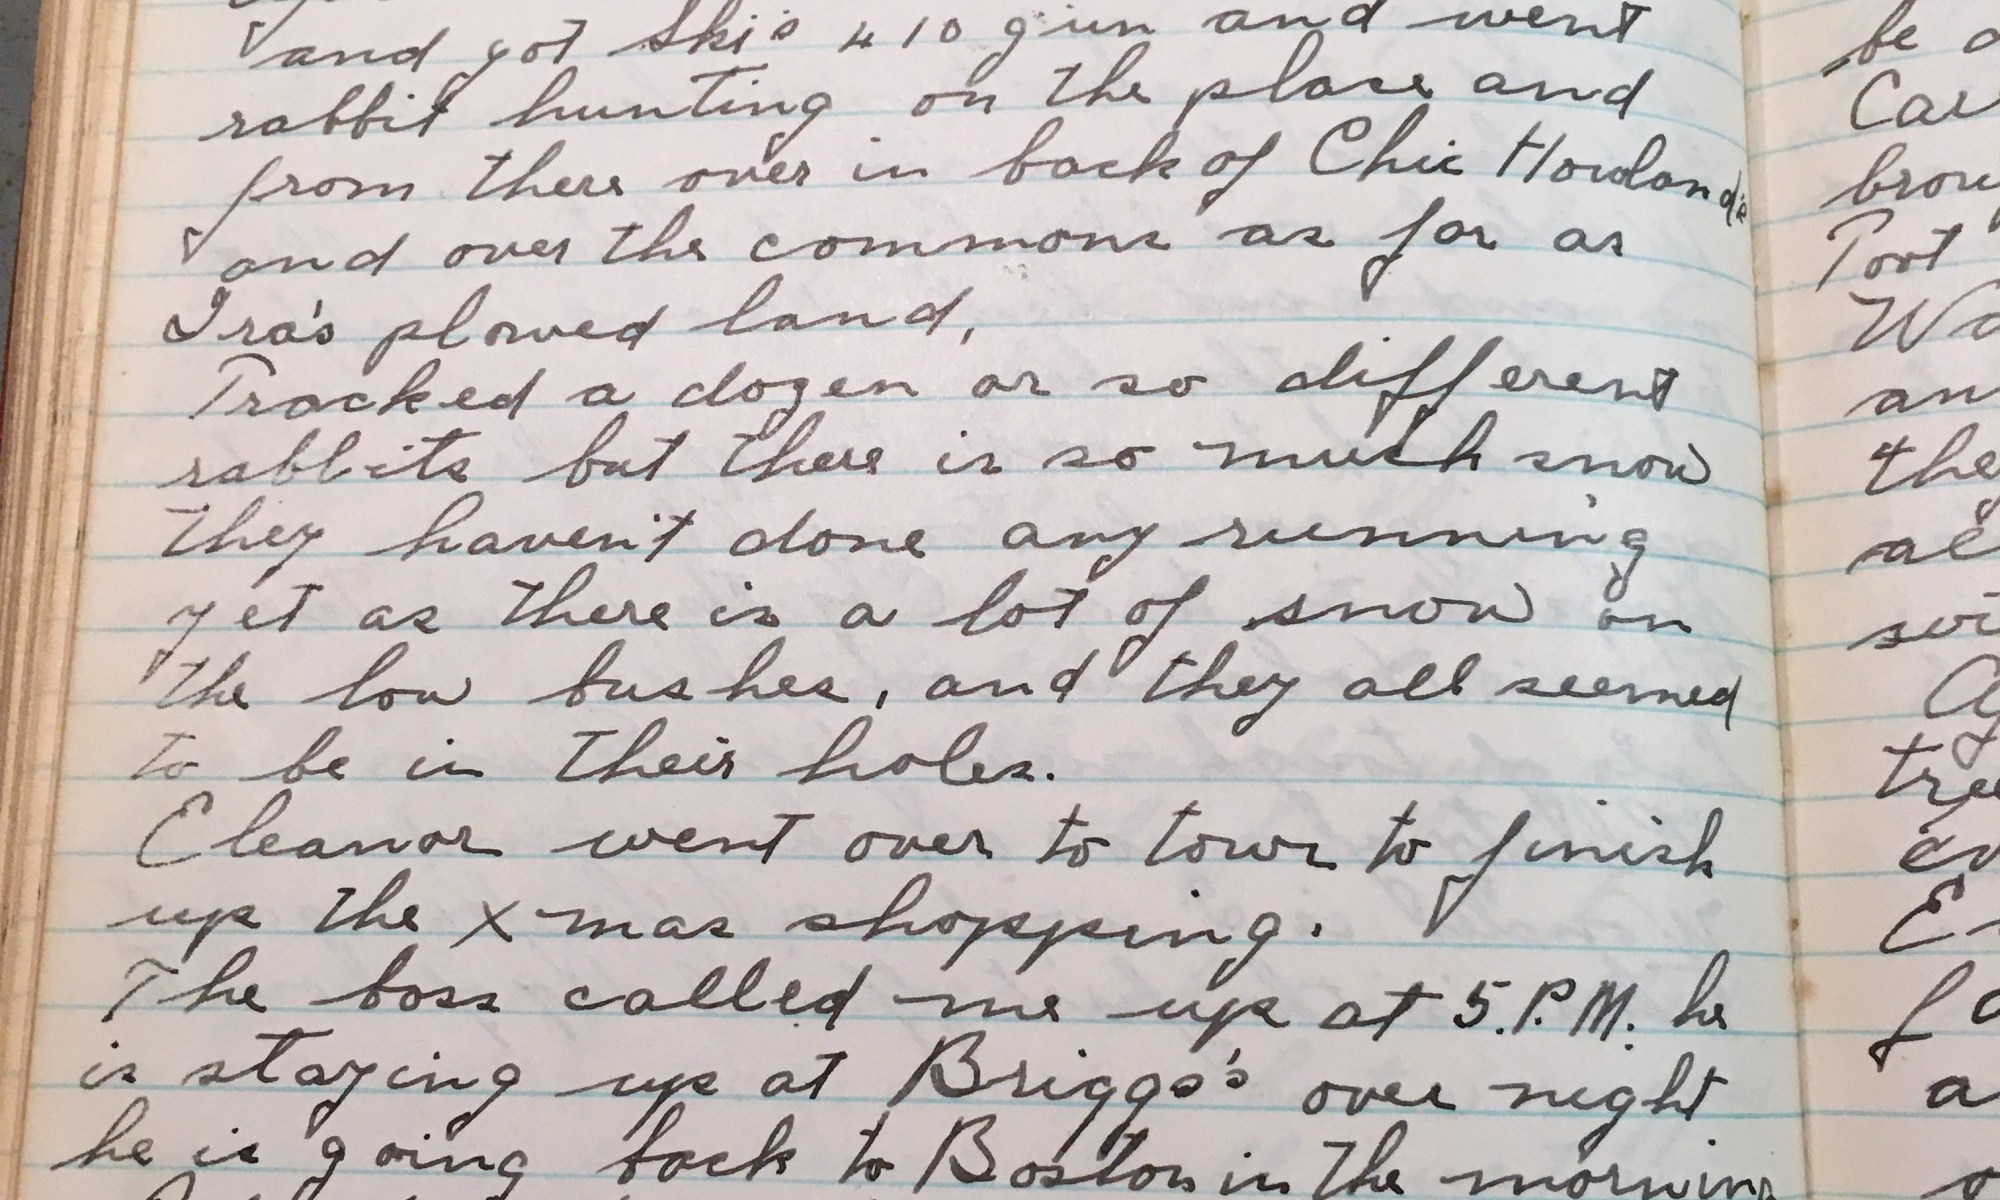 and got Ski's 410 gun and went
rabbit hunting on the place and
from there over in back of Chic Howland's
and over the commons as far as
Ira's plowed land,
Tracked a dozen or so different
rabbits but there is so much snow
they haven't done any running
yet as there is a lot of snow on
the low bushes, and they all seemed
to be in their holes.
Eleanor went over to town to finish
up the Xmas shopping.
The boss called me up at 5.P.M. he
is staying up at Briggs's over night
he is going back to Boston in the morning
be
Port
an
the
a